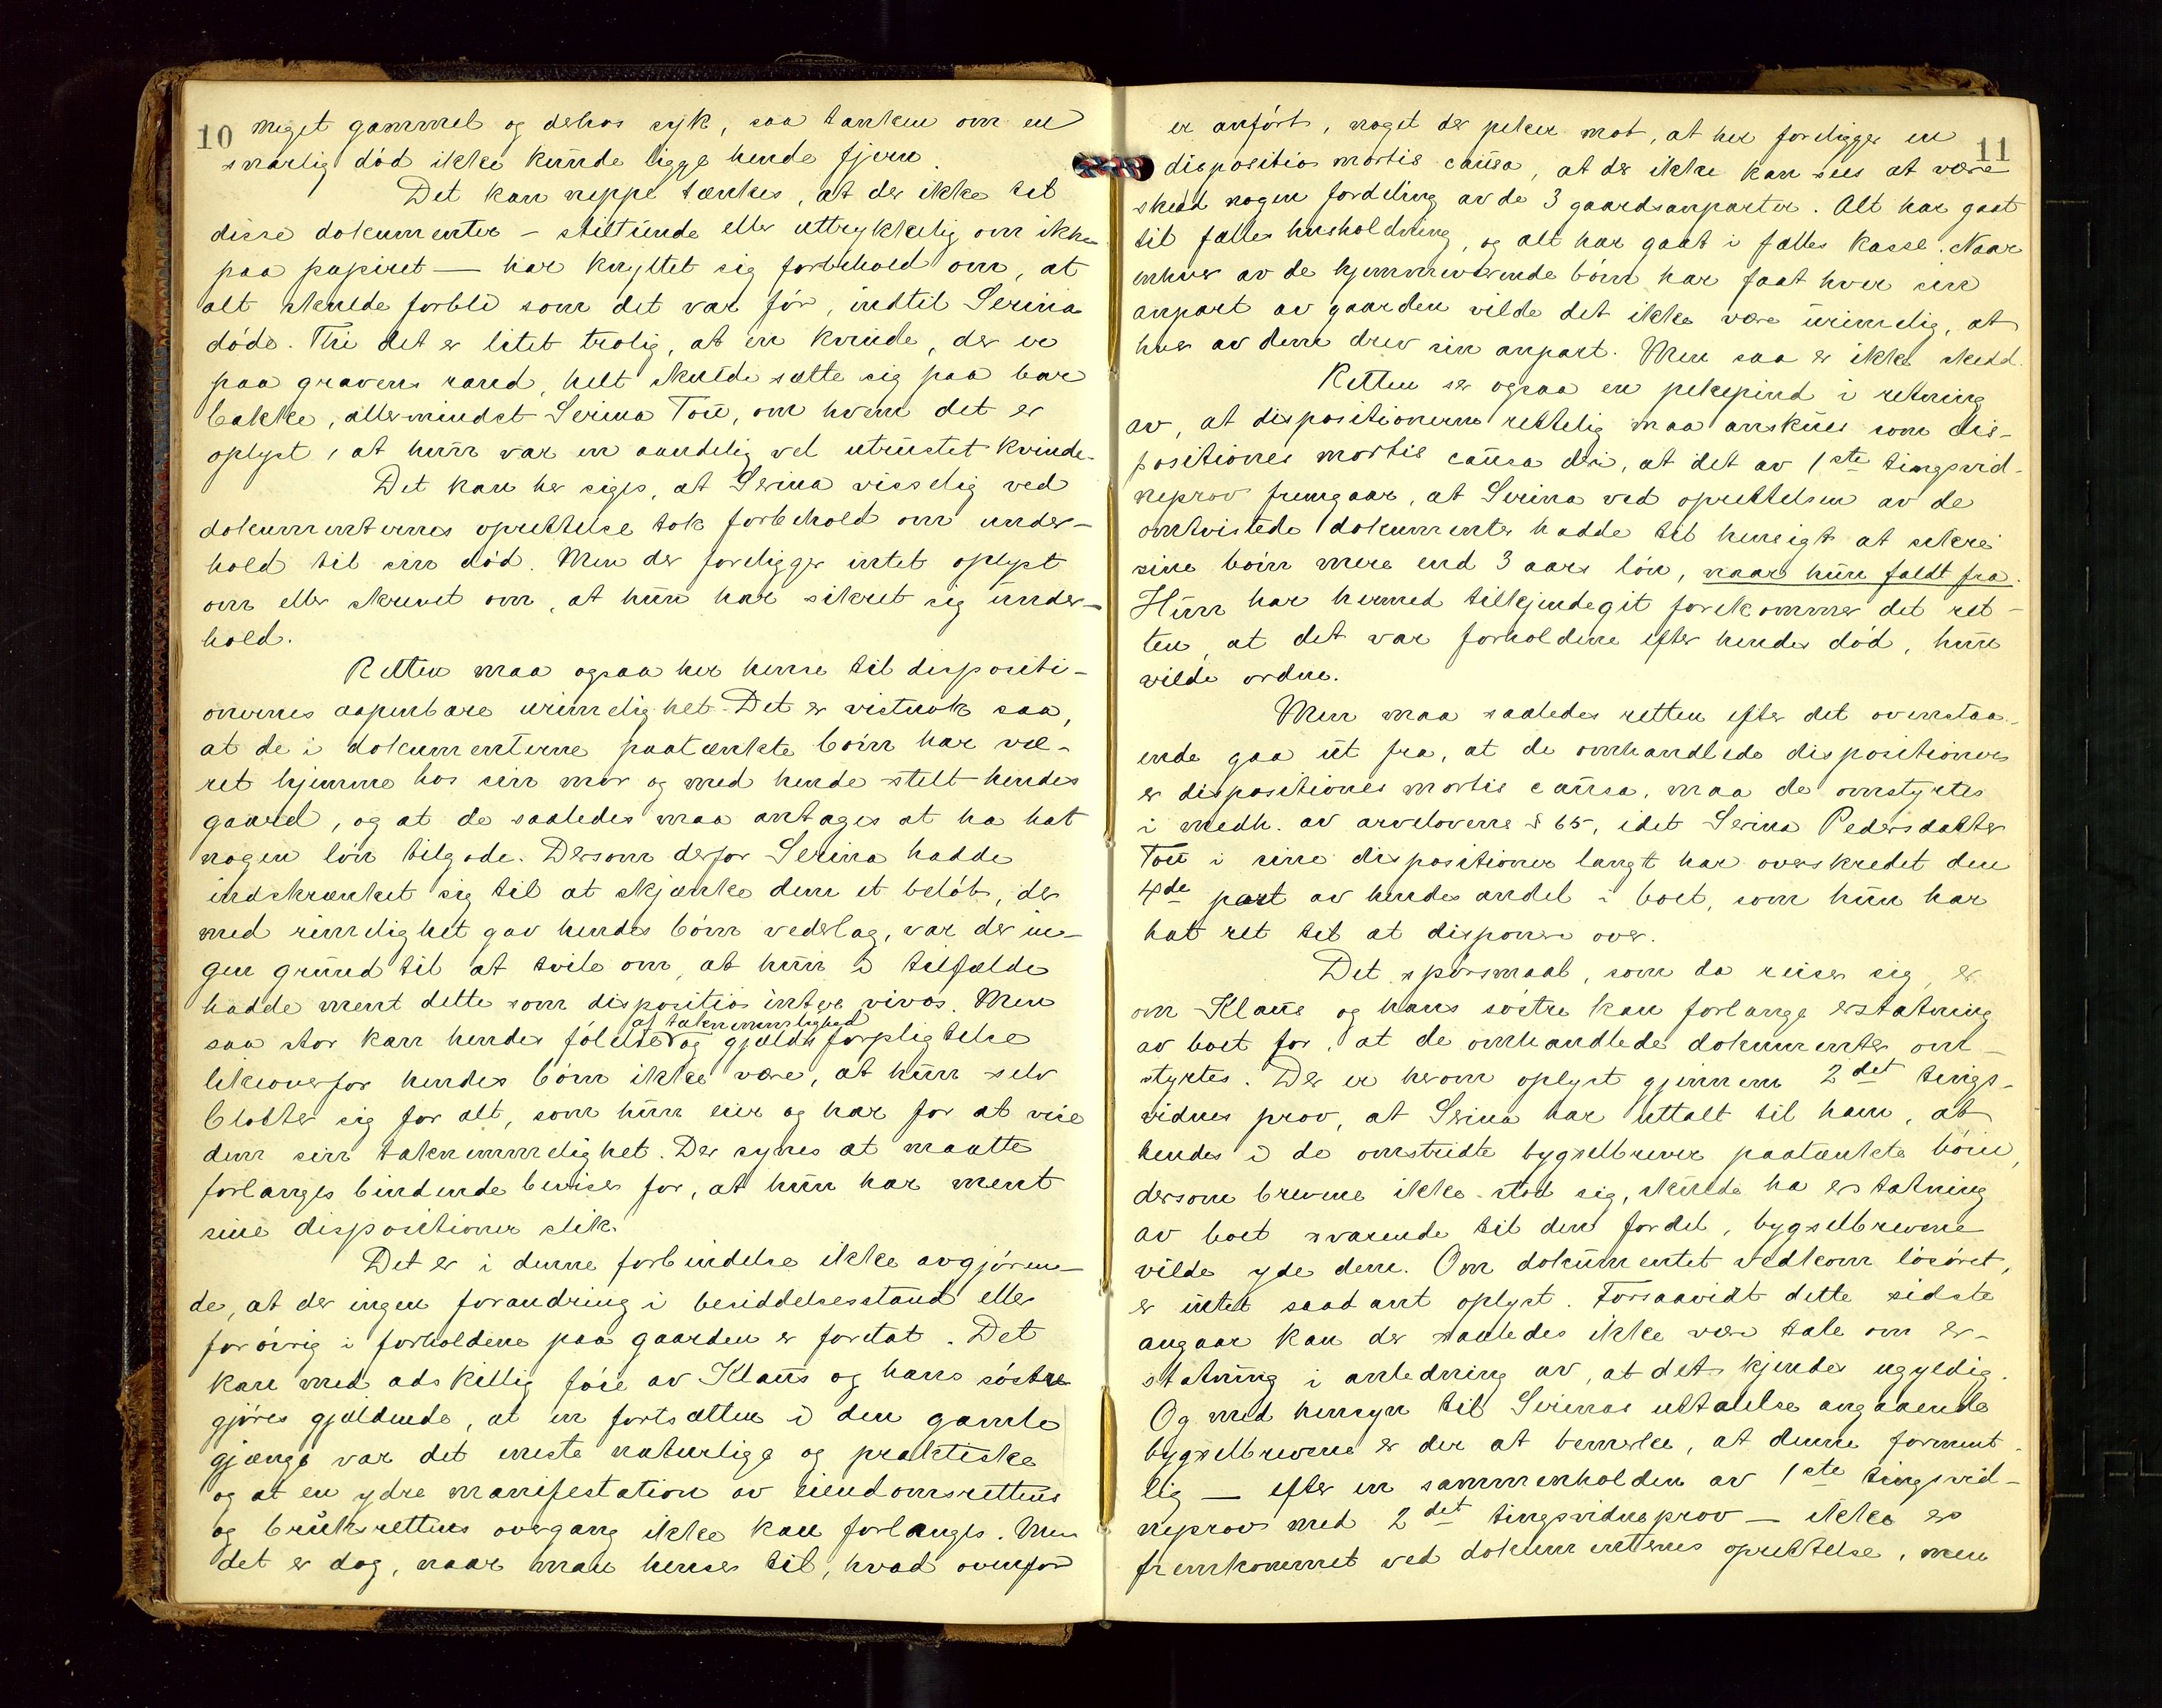 10
meget gammel og derhos syk, saa tanken om en
snarlig död ikke kunde ligge hende fjern.
Det kan neppe tænkes, at der ikke til
disse dokumenter – stiltiende eller uttrykkelig om ikke
paa papiret — har knyttet sig forbehold om, at
alt skulde forbli som det var för, indtil Serina
döde. Thi det er litet trolig, at en kvinde, der er
paa gravens rand, helt skulde sætte sig paa bar
bakke, allermindst Serina Tou, om hvem det er
oplyst, at hun var en aandelig vel utrustet kvinde.
Det kan her siges, at Serina visselig ved
dokumenternes oprettelse tok forbehold om under-
hold til sin död. Men der foreligger intet oplyst
om eller skrevet om, at hun har sikret sig under-
hold.
Retten maa ogsaa her hense til dispositi-
onernes aapenbare urimelighet. Det er vistnok saa,
at de i dokumenterne paatænkte börn har væ-
ret hjemme hos sin mor og med hende stelt hendes
gaard, og at de saaledes maa antages at ha hat
nogen lön tilgode. Dersom derfor Serina hadde
indskrænket sig til at skjænke dem et belöb, der
med rimelighet gav hendes börn vederlag, var der in-
gen grund til at tvile om, at hun i tilfælde
hadde ment dette som dispositio inter vivos. Men
af taknemmelighed
saa stor kan hendes fölelse og gjælds forpligtelse
likeoverfor hendes börn ikke være, at hun selv
blotter sig for alt, som hun eier og har for at vise
dem sin taknemmelighet. Der synes at maatte
forlanges bindende beviser for, at hun har ment
sine dispositioner slik.
Det er i denne forbindelse ikke avgjören-
de, at der ingen forandring i besiddelsesstand eller
forövrig i forholdene paa gaarden er foretat. Det
kan med adskillig föie av Klaus og hans söstre
gjöres gjældende, at en fortsætten i den gamle
gjænge var det eneste naturlige og praktiske
og at en ydre manifestation av eiendomsrettens
og bruksrettens overgang ikke kan forlanges. Men
det er dog, naar man henser til, hvad ovenfor
11
er anfört, noget der peker mot, at her foreligger en
dispositio mortis causa, at der ikke kan sees at være
skedd nogen fordeling av de 3 gaardsanparter. Alt har gaat
til fælles husholdning, og alt har gaat i fælles kasse. Naar
enhver av de hjemmeværende börn har faat hver sin
anpart av gaarden vilde det ikke være urimelig, at
hver av dem drev sin anpart. Men saa er ikke skedd.
Retten ser ogsaa en pekepind i retning
av, at dispositionerne rettelig maa anskues som dis-
positiones mortis causa deri, at det av 1ste tingsvid-
neprov fremgaar, at Serina ved oprettelsen av de
omtvistede dokumenter hadde til hensigt at sikre
sine börn mere end 3 aars lön, naar hun faldt fra.
Hun har hermed tilkjendegit forekommer det ret-
ten, at det var forholdene efter hendes död, hun
vilde ordne.
Men maa saaledes retten efter det ovenstaa-
ende gaa ut fra, at de omhandlede dispositioner
er dispositiones mortis causa, maa de omstyrtes
i medh. av arvelovens § 65, idet Serina Pedersdatter
Tou i sine dispositioner langt har overskredet den
4de part av hendes andel i boet, som hun har
hat ret til at disponere over.
Det spörsmaal, som da reiser sig, er
om Klaus og hans söstre kan forlange erstatning
av boet for, at de omhandlede dokumenter om-
styrtes. Der er herom oplyst gjennem 2det tings-
vidnes prov, at Serina har uttalt til ham, at
hendes i de omstridte bygselbrever paatænkte börn,
dersom brevene ikke stod sig, skulde ha erstatning
av boet svarende til den fordel, bygselbrevene
vilde yde dem. Om dokumentet vedkom lösöret,
er intet saadant oplyst. Forsaavidt dette sidste
angaar kan der saaledes ikke være tale om er-
statning i anledning av, at det kjendes ugyldig.
Og med hensyn til Serinas uttalelse angaaende
bygselbrevene er der at bemerke, at denne forment-
lig — efter en sammenholden av 1ste tingsvid-
neprov med 2det tingsvidneprov — ikke er
fremkommet ved dokumenternes oprettelse, men